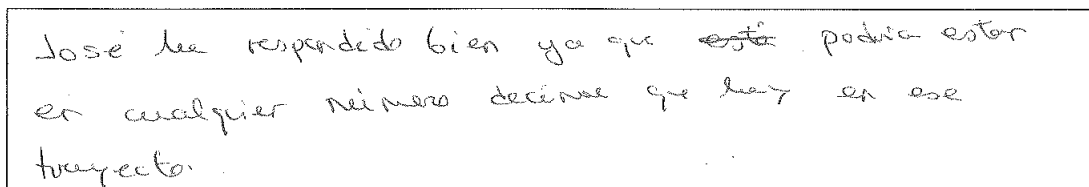 José ha respondido bien ya que está podría estar
en cualquier número decimal que hay en ese
trayecto.